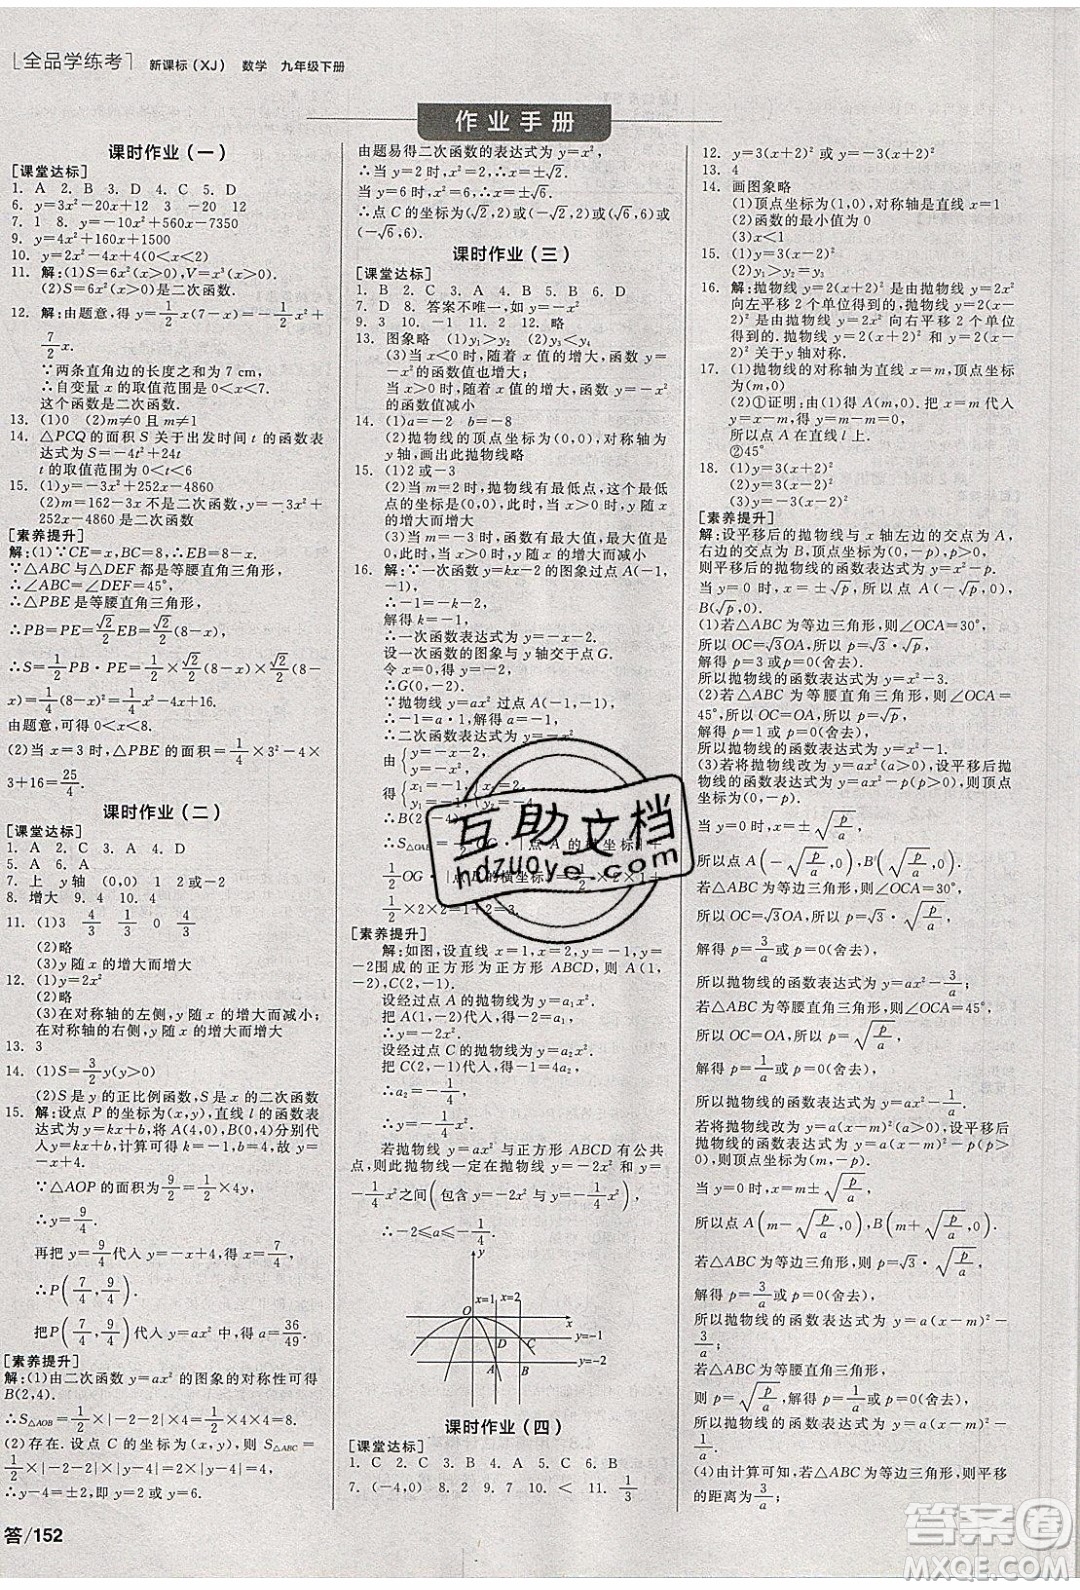 [全品学练考] 新课标(XJ) 数学 九年级下册
作业手册
课时作业(一)
[课堂达标]
1. A 2. B 3. C 4. D 5. D
6. y=3x²-2x-12 3 -20 12
7. 1 8. y=-10x²+560x-7350
9. y=4x²+160x+1500
10. y=2x²-4x+4(0<x<2)
11. 解:(1)S=6x²(x>0),V=x³(x>0).
(2)S=6x²(x>0)是二次函数.
12. 解:由题意,得 y=1/2x(7-x)=-1/2x²+
7/2x.
∵两条直角边的长度之和为7 cm,
∴自变量x的取值范围是0<x<7.
这个函数是二次函数.
13. (1)0 (2)m≠0且m≠1
14. △PCQ的面积S关于出发时间t的函数表
达式为S=-4t²+24t
t的取值范围是0<t<6
15. (1)y=-3x²+252x-4860
(2)m=162-3x不是二次函数,y=-3x²
+252x-4860是二次函数
[素养提升]
解:(1)∵CE=x,BC=8,∴EB=8-x.
∵△ABC与△DEF都是等腰直角三角形,
∴∠ABC=∠DEF=45°,
∴△PBE是等腰直角三角形,
∴PB=PE=√2/2EB=√2/2(8-x),
∴S=1/2PB·PE=1/2×√2/2(8-x)×√2/2(8-
x)=1/4(8-x)²=1/4x²-4x+16.
由题意,可得0<x<8.
(2)当x=3时,△PBE的面积=1/4×3²-4×
3+16=25/4.
课时作业(二)
[课堂达标]
1. A 2. C 3. A 4. D
5. A 6. A
7. 上 y轴 (0,0) 1 2或-2
8. 增大 9. 4 10. 4
11. (1)3 4/3 1/3 0 4/3
(2)略
(3)y随x的增大而增大
12. (1)y=2x²
(2)略
(3)在对称轴的左侧,y随x的增大而减小;
在对称轴的右侧,y随x的增大而增大
13. 3
14. (1)S=3/2y(y>0)
(2)S是y的正比例函数,S是x的二次函数
15. 解:设点P的坐标为(x,y),直线l的函数表
达式为y=kx+b,将A(4,0),B(0,4)分别代
入y=kx+b,计算可得k=-1,b=4,故y=
-x+4.
∵△AOP的面积为9/2=1/2×4y,
∴y=9/4.
再把y=9/4代入y=-x+4,得x=7/4,
∴P(7/4,9/4).
把P(7/4,9/4)代入y=ax²中,得a=36/49.
[素养提升]
解:(1)由二次函数y=ax²的图象的对称性可得
B(2,4).
∴S△AOB=1/2×|-2-2|×4=1/2×4×4=8.
(2)存在.设点C的坐标为(x,y),则S△ABC=
1/2×|-2-2|×|4-y|=1/2×8,
∴y=2或y=6.
由题易得二次函数的表达式为y=x²,
∴当y=2时,x²=2,解得x=±√2.
当y=6时,x²=6,解得x=±√6.
∴点C的坐标为(√2,2)或(-√2,2)或(√6,6)或
(-√6,6).
课时作业(三)
[课堂达标]
1. B 2. C 3. A 4. D 5. B 6. D
7. D 8. 答案不唯一,如y=-x²
9. 3 10. -1 11. 2 12. 略
13. 图象略 (1)y₁>y₂ (2)y₃<y₄
(3)当x<0时,随着x值的增大,函数y=
-x²的函数值也增大;
当x>0时,随着x值的增大,函数y=-x²的
函数值减小
14. (1)a=-2 b=-8
(2)抛物线的顶点坐标为(0,0),对称轴为y
轴,画出此抛物线略
15. (1)2或-3
(2)当m=2时,抛物线有最低点,这个最低点
的坐标是(0,0),此时,当x>0时,y随x
的增大而增大
(3)当m=-3时,函数有最大值,最大值是
0,此时,当x>0时,y随x的增大而减小
16. 解:∵一次函数y=kx-2的图象过点A(-1,
-1),
∴-1=-k-2,
解得k=-1,
∴一次函数表达式为y=-x-2.
设一次函数的图象与y轴交于点G.
令x=0,得y=-2,
∴G(0,-2).
∵抛物线y=ax²过点A(-1,-1),
∴-1=a×1,解得a=-1,
∴二次函数表达式为y=-x².
[素养提升]
解:如图,设直线x=1,x=2,y=-1,y=
-2围成的正方形为正方形ABCD,则A(1,
-2),C(2,-1).
设经过点A的抛物线为y=a₁x²,
把A(1,-2)代入,得a₁=-2,
∴y=-2x².
设经过点C的抛物线为y=a₂x²,
把C(2,-1)代入,得-1=4a₂,
∴a₂=-1/4,
∴y=-1/4x².
若抛物线y=ax²与正方形ABCD有公共
点,则此抛物线一定在抛物线y=-2x²和y=
-1/4x²之间(包含y=-2x²与y=-1/4x²),
∴-2≤a≤-1/4.
y
x=1 x=2
O x
D C y=-1
A B y=-2
课时作业(四)
[课堂达标]
1. C 2. C 3. A 4. B 5. C 6. B
7. (-4,0) 8. 2 9. 7 10. < 11. 1/3
12. y=3(x+2)²或y=-3(x+2)²
13. 4
14. 画图象略
(1)顶点坐标为(1,0),对称轴为直线x=1
(2)函数的最小值为0
(3)x<1
15. (1)y=3(x-2)²
(2)y₁>y₃>y₂
16. 解:抛物线y=2(x+2)²是由抛物线y=2x²
向左平移2个单位得到的,抛物线y=2(x-
2)²是由抛物线y=2x²向右平移2个单位得
到的.抛物线y=2(x+2)²和抛物线y=2(x-
2)²关于y轴对称.
17. (1)抛物线的对称轴为直线x=m,顶点坐标
为(m,0)
(2)①证明:由(1)得A(m,0).把x=m代入
y=x-m,得y=m-m=0.
所以点A在直线l上.
②45°
18. (1)y=3(x-2)²
(2)y=-3(x-2)²
[素养提升]
解:设平移后的抛物线与x轴左边的交点为A,
右边的交点为B,与y轴交于点C.
则平移后的抛物线的函数表达式为y=x²-p.
当y=0时,x=±√p,所以点A(-√p,0),
B(√p,0).
(1)若△ABC为等边三角形,则∠OCA=30°,
所以OC=√3OA,所以p=√3·√p,
解得p=3或p=0(舍去).
所以抛物线的函数表达式为y=x²-3.
(2)若△ABC为等腰直角三角形,则∠OCA=
45°,所以OC=OA,所以p=√p,
解得p=1或p=0(舍去).
所以抛物线的函数表达式为y=x²-1.
(3)若将抛物线改为y=ax²(a>0),设平移后的
抛物线的函数表达式为y=ax²-p(p>0),则顶点
坐标为C(0,-p).
当y=0时,x=±√(p/a),
所以点A(-√(p/a),0),B(√(p/a),0).
若△ABC为等边三角形,则∠OCA=30°,
所以OC=√3OA,所以p=√3·√(p/a),
解得p=3/a或p=0(舍去).
所以抛物线的函数表达式为y=ax²-3/a.
若△ABC为等腰直角三角形,则∠OCA=45°,
所以OC=OA,所以p=√(p/a),
解得p=1/a或p=0(舍去).
所以抛物线的函数表达式为y=ax²-1/a.
所以点A(m-√(p/a),0),B(m+√(p/a),0).
若△ABC为等边三角形,则p=√3·√(p/a),
解得p=3/a或p=0(舍去),
所以抛物线的函数表达式为y=a(x-m)²-3/a.
若△ABC为等腰直角三角形,
则p=√(p/a),解得p=1/a或p=0(舍去),
所以抛物线的函数表达式为y=a(x-m)²-1/a.
(4)由计算可知,若△ABC为等腰三角形,则平移
的距离为3/a或1/a
互助文档
hdzuoye.com
答案圈
MXQE.COM
答/152